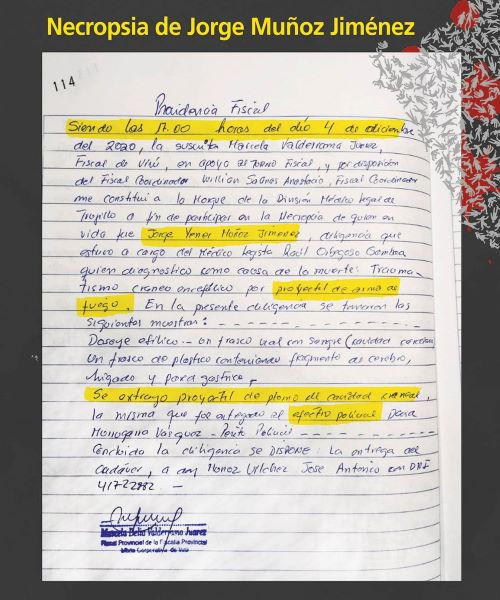 Necropsia de Jorge Muñoz Jiménez
114
Providencia Fiscal
Siendo las 17.00 horas del día 4 de diciembre
del 2020, la suscrita Marcela Valderrama Juarez,
Fiscal de Virú, en apoyo al Turno Fiscal, y por disposición
del Fiscal Coordinador William Salinas Anastacio, Fiscal Coordinador
me constitui a la Morgue de la División Médico legal de
Trujillo a fin de participar en la Necropcia de quien en
vida fue Jorge Yener Muñoz Jimenez, diligencia que
estuvo a cargo del Médico legista Raúl Gamboa
quien diagnostico como causa de la muerte: Trauma-
tismo craneo encefálico por proyectil de arma de
fuego. En la presente diligencia se tomaron las
siguientes muestras: - - - - - - - -
Dosaje etílico.- un frasco vial con sangre (cavidad
Un frasco de plastico conteniendo fragmento de cerebro,
hígado y pared gastrica.-
Se extrajo proyectil de plomo de cavidad craneal,
la misma que fue entregado al efectivo policial
Vásquez - Perito Policial - - - - - - - -
Concluida la diligencia se DISPONE: la entrega del
cadáver, a Muñoz Vilchez José Antonio con DNI
41722882 —
Marcela Delia Valderrama Juarez
Fiscal Provincial de la Fiscalía Provincial
Mixta Corporativa de Virú